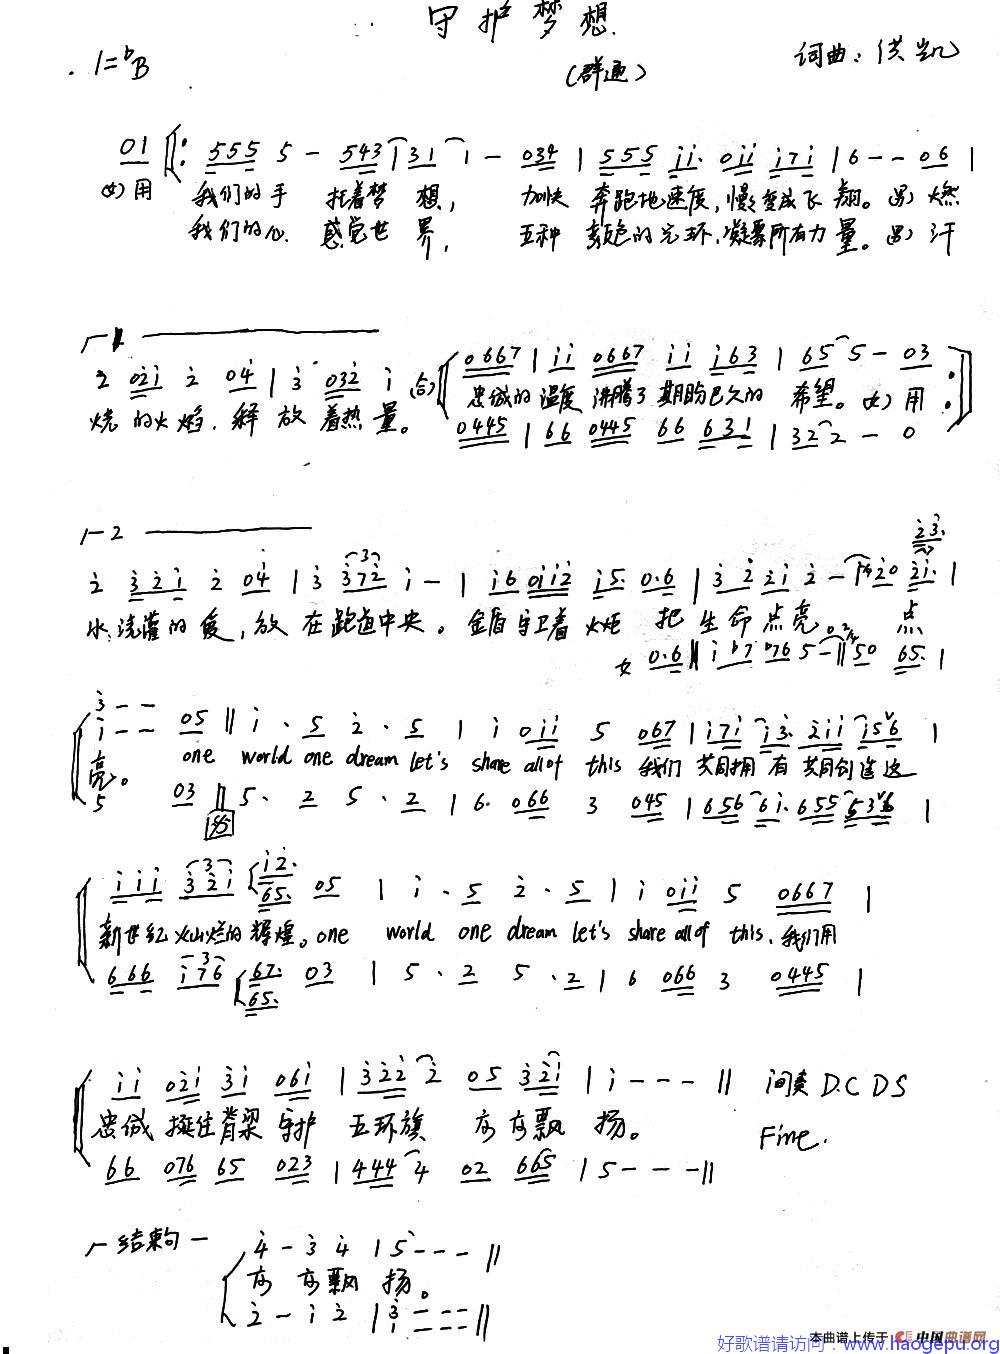 守护梦想
(群通)
1=♭B
词曲：洪凯
01 ‖: 555 5 - 543 | 31 1 - 034 | 555 i̇i̇. 0i̇i̇ i̇7i̇ | 6 - - 06 |
女）用 我们的手 托着梦 想， 加快 奔跑地速度，慢慢变成飞 翔。男）燃
我们的心 感觉世 界， 五种 颜色的光环，凝聚所有力 量。男）汗
┌1
2̇ 02̇i̇ 2̇ 04̇ | 3̇ 03̇2̇ i̇ (合) 0667 | i̇i̇ 0667 i̇i̇ i̇63 | 65 5 - 03 :‖
烧 的火焰，释 放 着热 量。 忠诚的 温度 沸腾了 期盼已久的 希望。女）用
0445 | 66 0445 66 631 | 32 2 - 0
┌2
2̇3̇.
2̇ 3̇2̇i̇ 2̇ 04̇ | 3̇ 3̇72̇ i̇ - | i̇6 0i̇i̇2̇ i̇5. 0.6 | 3̇ 2̇ 2̇i̇ 2̇ - 2̇0 2̇i̇. |
水浇灌的爱，放 在跑道中央。 金盾守卫着 火炬 把 生命点亮。 点
女 0.6 ‖ i̇ ♭7 ♭765 - ‖ 2/4 50 65. |
3̇ - -
i̇ - - 05 ‖ i̇ . 5 2̇ . 5 | i̇ 0i̇i̇ 5 067 | i̇7i̇ i̇3̇. 2̇i̇i̇ i̇5ᵛ6 |
亮。 one world one dream let's share all of this 我们 共同拥 有 共同创造这
5 03 ‖ 5 . 2 5 . 2 | 6 . 066 3 045 | 656 6i̇. 655 53ᵛ6 |
i̇i̇i̇ 3̇2̇i̇ i̇2̇. 65. 05 | i̇ . 5 2̇ . 5 | i̇ 0i̇i̇ 5 0667 |
新世纪 火灿烂的 辉煌。one world one dream let's share all of this，我们用
666 i̇76 67. 65. 03 | 5 . 2 5 . 2 | 6 066 3 0445 |
i̇i̇ 02̇i̇ 3̇i̇ 06i̇ | 3̇2̇2̇ 2̇ 05 3̇2̇i̇ | i̇ - - - ‖ 间奏 D.C D S
忠诚 挺住脊梁 守护 五环旗 高高飘 扬。 Fine.
66 076 65 023 | 444 4 02 665 | 5 - - - ‖
┌ 结束句 ─
4̇ - 3̇ 4̇ | 5̇ - - - ‖
高 高飘 扬。
2̇ - i̇ 2̇ | 3̇ - - - ‖
i̇ - - -
本曲谱上传于 中国曲谱网
好歌谱请访问：www.haogepu.org